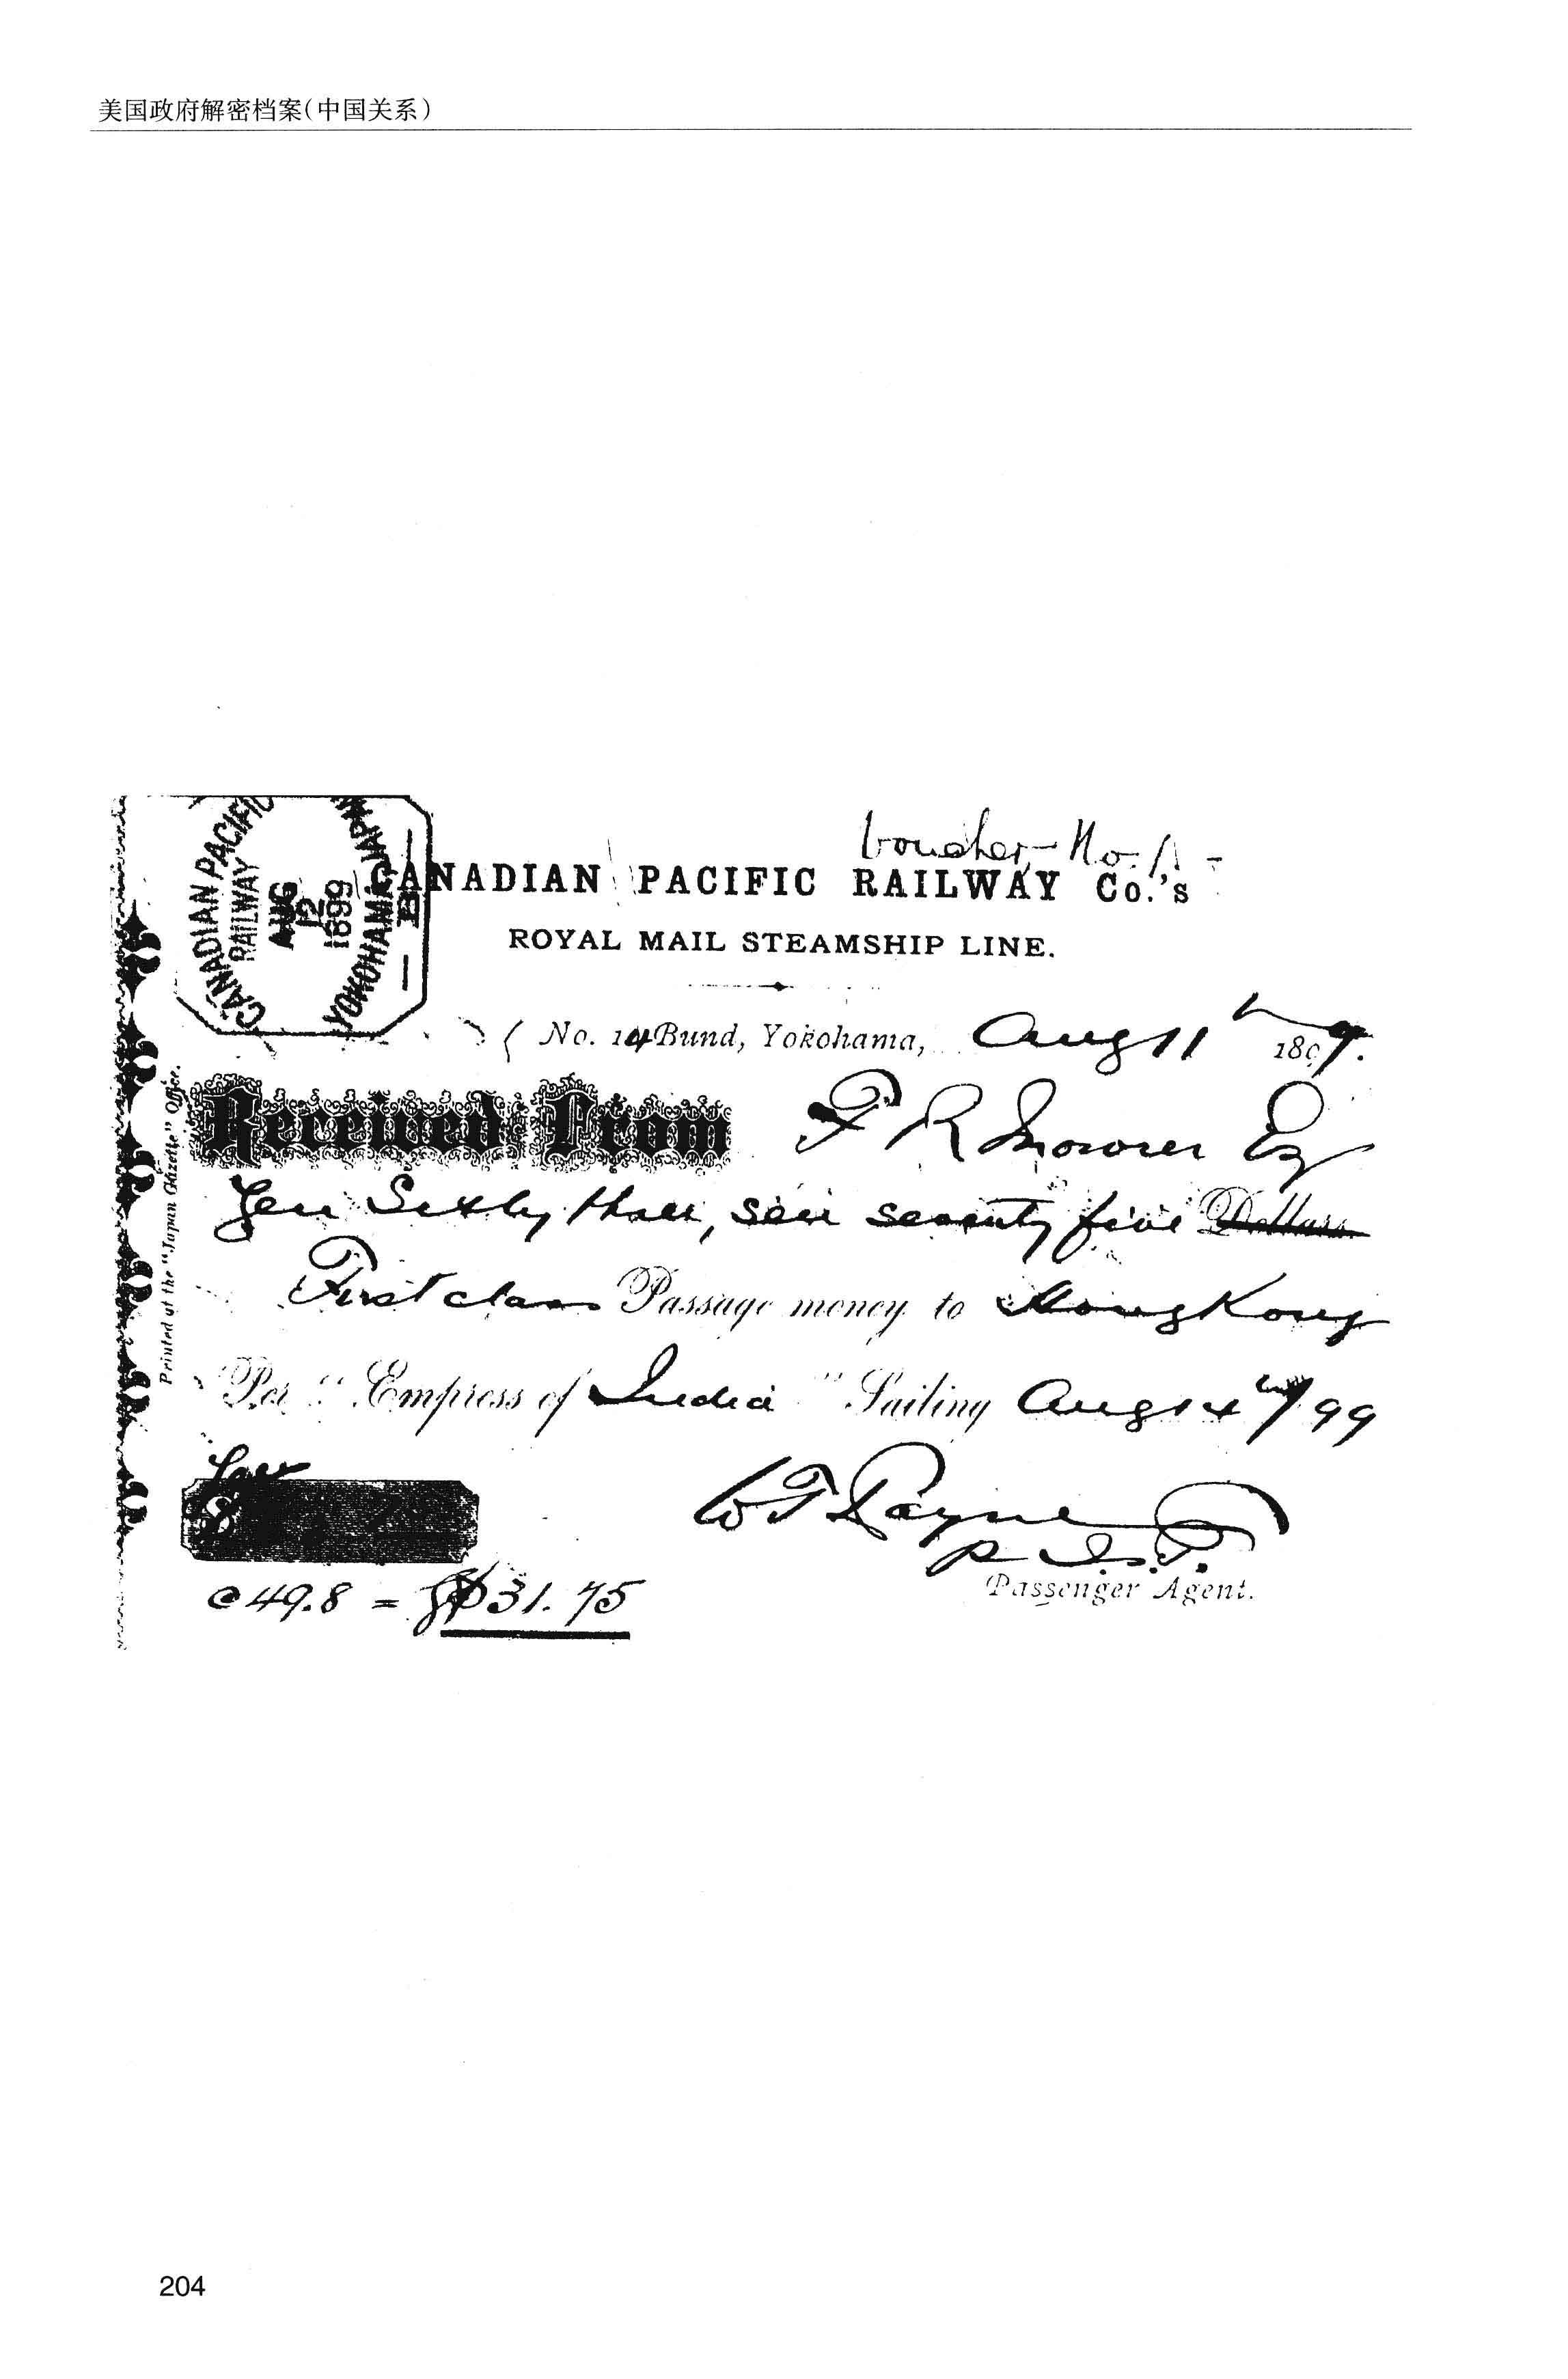 美国政府解密档案(中国关系)
Voucher No. 1
CANADIAN PACIFIC RAILWAY Co.'s
ROYAL MAIL STEAMSHIP LINE.
CANADIAN PACIFIC
RAILWAY
AUG
12
1899
YOKOHAMA, JAPAN
No. 14 Bund, Yokohama, Aug 11th 1899.
Received From F R Mowrer Esq
Yen Sixty three, sen seventy five Dollars
First class Passage money to Hong Kong
Per "Empress of India" Sailing Aug 14th/99
Yen
$
W T Payne
Passenger Agent.
@ 49.8 = $31.75
Printed at the "Japan Gazette" Office.
204